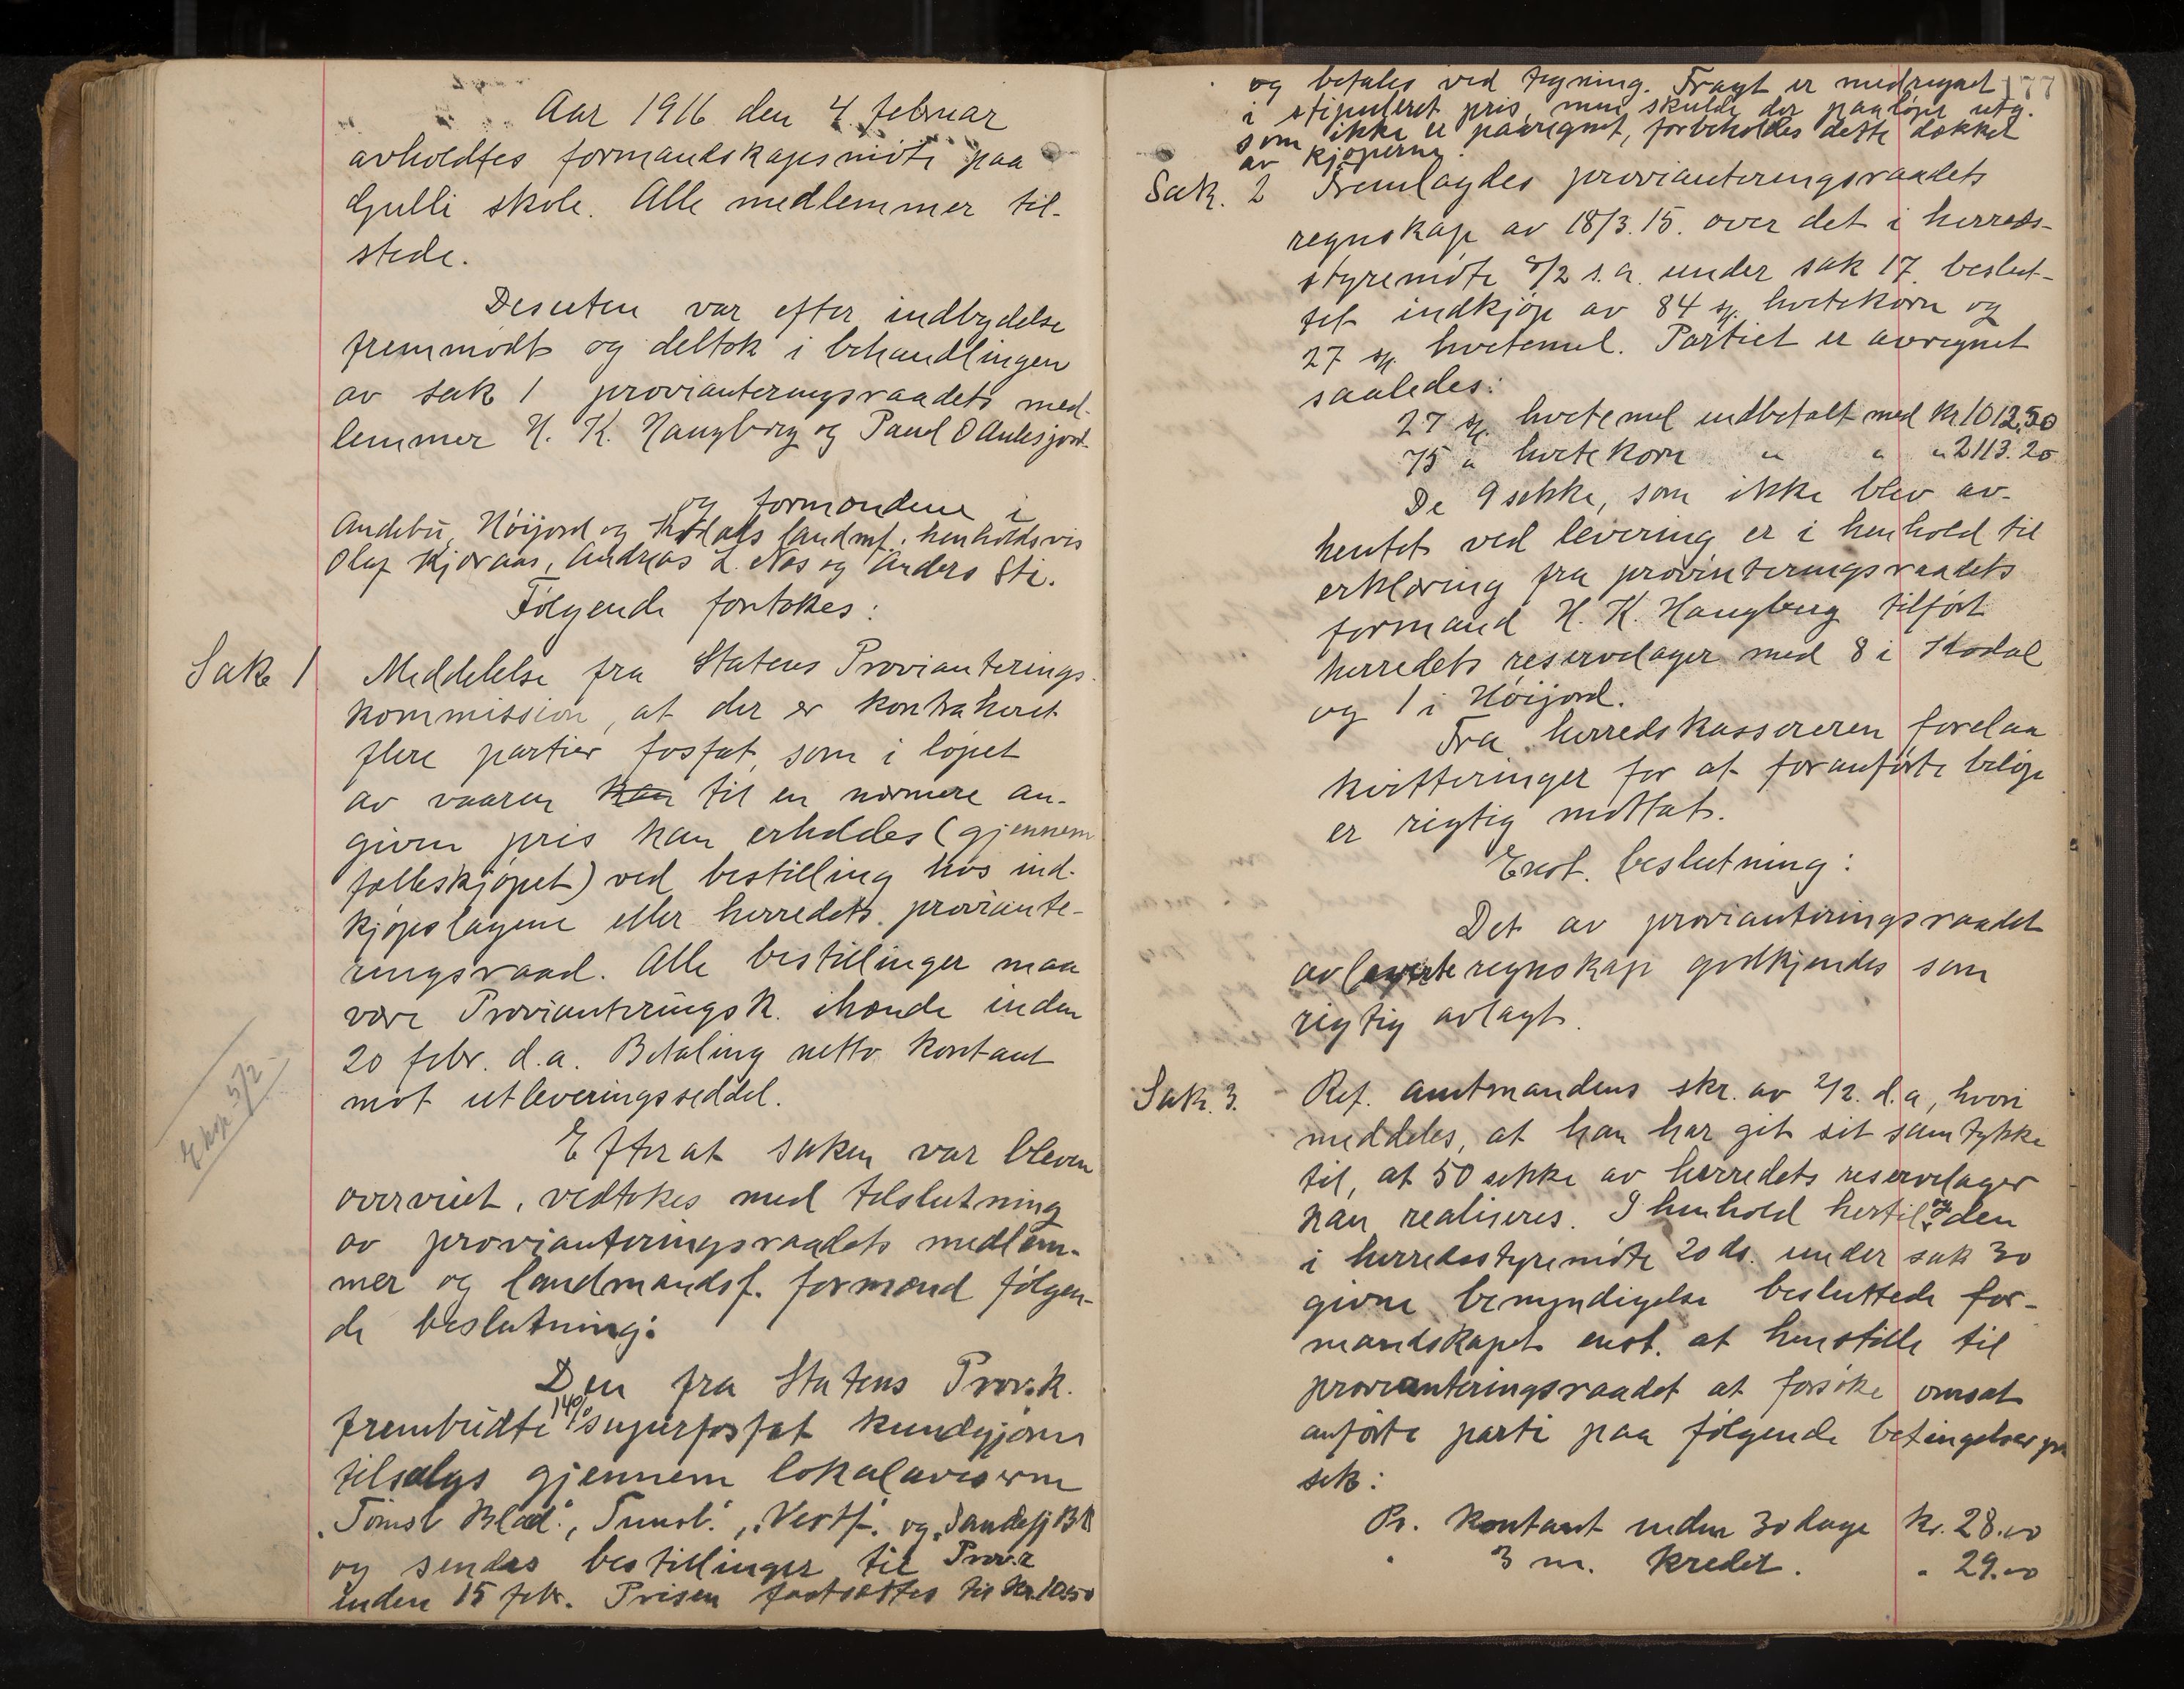 Aar 1916 den 4. februar
avholdtes formandskapsmöte paa
Gulli skole. Alle medlemmer til-
stede.
Desuten var efter indbydelse
fremmödt og deltok i behandlingen
av sak 1 provianteringsraadets med-
lemmer H. K. Haugberg og Paul O Aulesjord
og formændene i
Andebu, Höijord og Kodals landmf. henholdsvis
Olaf Kjæraas, Andreas L. Næs og Anders Sti.
Fölgende foretokes:
Sak 1 Meddelelse fra Statens Provianterings-
kommission, at der er kontrahert
flere partier fosfat, som i löpet
av vaaren kan til en nærmere an-
given pris kan erholdes (gjennem
fælleskjöpet) ved bestilling hos ind-
kjöpslagene eller herredets proviante-
ringsraad. Alle bestillinger maa
være Provianteringsk. ihænde inden
20 febr. d.a. Betaling netto kontant
mot utleveringsseddel.
Eksp 5/2
Efterat saken var bleven
overveiet, vedtokes med tilslutning
av provianteringsraadets medlem-
mer og landmandsf. formænd fölgen-
de beslutning:
Den fra Statens Prov.k.
frembudte 140/0 superfosfat kundgjöres
tilsalgs gjennem lokalaviserne
„Tönsb Blad“, Tunsb.“, „Vestf.“ og „Sandefj Bl
og sendes bestillinger til Prov.r
inden 15 febr. Prisen fastsættes til kr. 10.50
177
og betales ved tegning. Fragt er medregnet
i stipuleret pris, men skulde der paalöpe utg.
som ikke er paaregnet, forbeholdes dette dækket
av kjöperne.
Sak. 2 Fremlagdes provianteringsraadets
regnskap av 18/3.15. over det i herreds-
styremöte 8/2 s.a. under sak 17 beslut-
tet indkjöp av 84 sk. hvetekorn og
27 sk. hvetemel. Partiet er avregnet
saaledes:
27 sk. hvetemel indbetalt med kr. 1012,50
75 " hvetekorn " " " 2113.20
De 9 sekke, som ikke blev av-
hentet ved levering er i henhold til
erklæring fra provinteringsraadets
formand H. K. Haugberg tilfört
herredets reservelager med 8 i Kodal
og 1 i Höijord.
Fra herredskassereren forelaa
kvitteringer for at foranförte belöp
er rigtig mottat.
Enst. beslutning:
Det av provianteringsraadet
avleverte regnskap godkjendes som
rigtig avlagt.
Sak. 3. Ref. amtmandens skr. av 2/2. d.a, hvori
meddeles, at han har git sit samtykke
til, at 50 sekke av herredets reservelager
kan realiseres. I henhold hertil og den
i herredsstyremöte 20 ds. under sak 30
givne bemyndigelse besluttede for-
mandskapet enst. at henstille til
provianteringsraadet at forsöke omsat
anförte parti paa fölgende betingelser pr
sek:
Pr. kontant inden 30 dage kr. 28.00
" 3 m. kredit. " 29.00